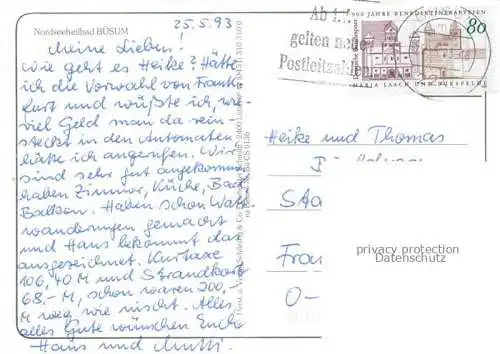 25.5.93
Nordseeheilbad BÜSUM
Meine Lieben!
Wie geht es Heike? Hätte
ich die Vorwahl von Frank-
furt und wüßte ich, wie
viel Geld man da rein-
steckt in den Automaten
hätte ich angerufen. Wir
sind sehr gut angekommen
haben Zimmer, Küche, Bad
Balkon. Haben schon Watt-
wanderungen gemacht
und Hans bekommt das
ausgezeichnet. Kurtaxe
106,40 M und Strandkorb
68,- M, schon waren 200,-
M weg wie nischt. Alles
alles Gute wünschen Euch
Hans und Mutti.
Ab 1.
gelten neue
Postleitzahlen
900 JAHRE BENEDIKTINERABTEIEN
80
MARIA LAACH UND BURSFELDE
Heike und Thomas
Fran
O-
privacy protection
Datenschutz